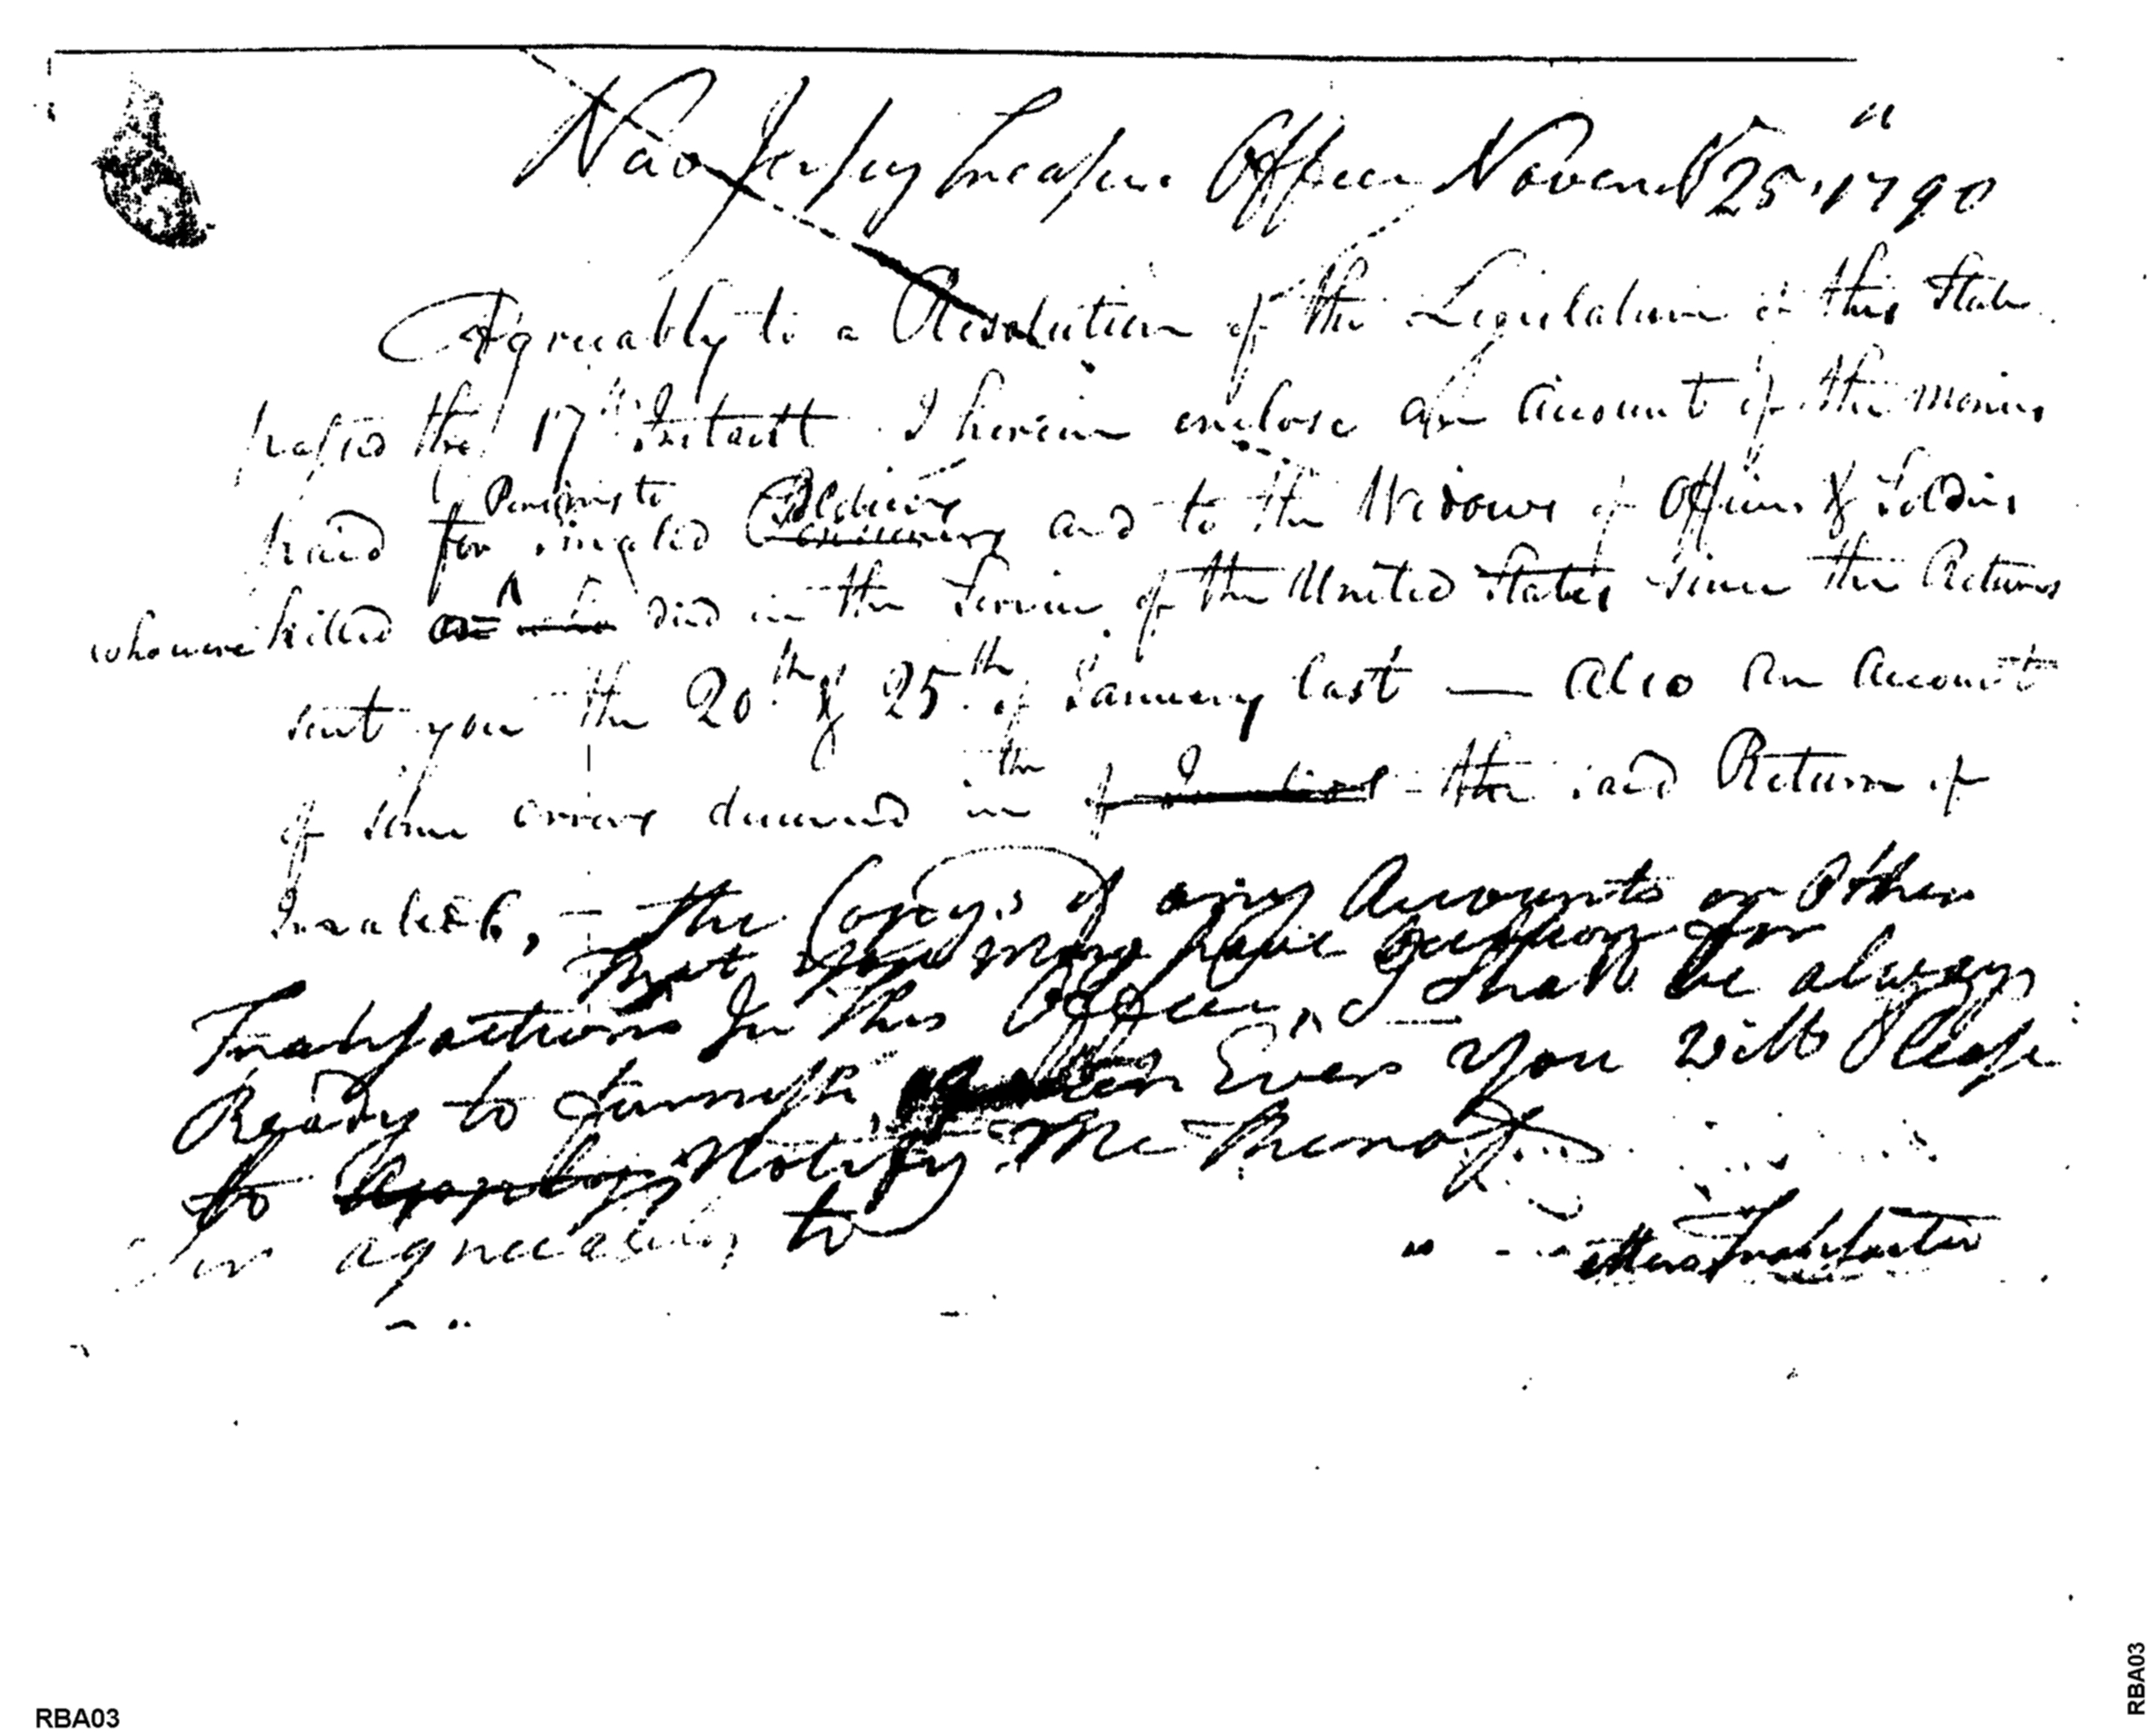 New Jersey Treasure Office Novem<sup>r</sup> 25th 1790
Agreeably to a Resolution of the Legislature of this State
passed the 17th Instant I herein enclose an account of the monies
paid for Pensions to Soldiers and to the Widows of Officers & Soldiers
who were killed or died in the Service of the United States since the Returns
sent you the 20th & 25th of January last — also an account
of some errors in the said Return of
Invalids, – the Copeys of any Accounts or Other
that you may have for
Transactions In this Office, I shall be always
Ready to furnish, when Ever you will Please
to Notify Me thereof
agreeably to
RBA03
RBA03